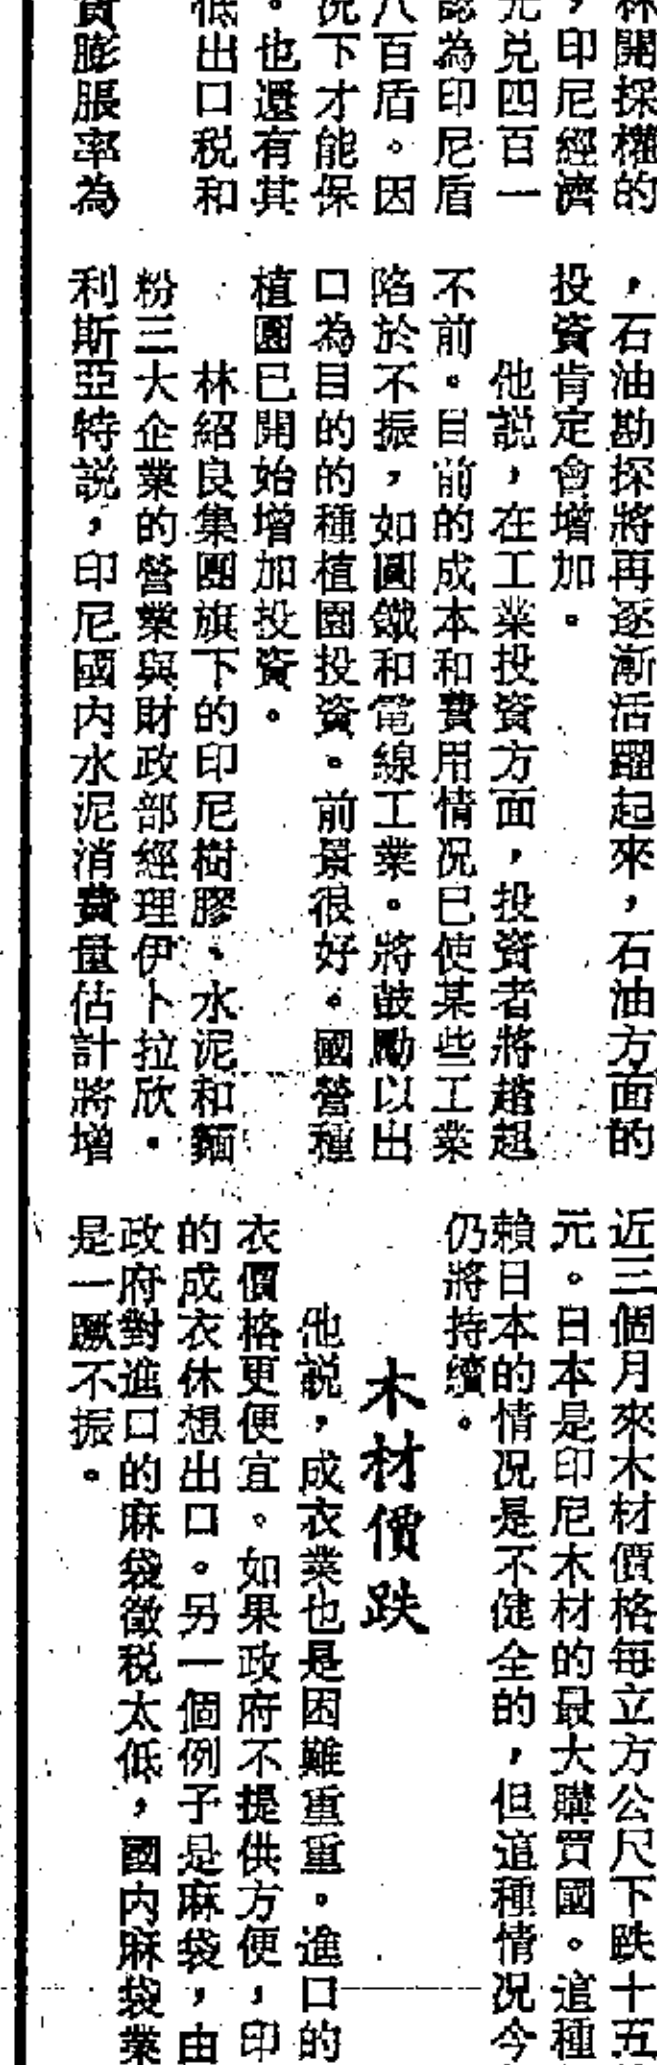 林開採權的
，印尼經濟
元兑四百一
認為印尼盾
八百盾。因
况下才能保
。也還有其
低出口税和
貨膨脹率為
，石油勘探將再逐漸活躍起來，石油方面的
投資肯定會增加。
他説，在工業投資方面，投資者將趑趄
不前。目前的成本和費用情况已使某些工業
陷於不振，如圓鐵和電線工業。將鼓勵以出
口為目的的種植園投資。前景很好。國營種
植園已開始增加投資。
林紹良集團旗下的印尼樹膠、水泥和麵
粉三大企業的營業與財政部經理伊卜拉欣·
利斯亞特説，印尼國内水泥消費量估計將增
近三個月來木材價格每立方公尺下跌十五
元。日本是印尼木材的最大購買國。這種
賴日本的情况是不健全的，但這種情况今
仍將持續。
木材價跌
他説，成衣業也是困難重重。進口的
衣價格更便宜。如果政府不提供方便，印
的成衣休想出口。另一個例子是麻袋，由
政府對進口的麻袋徵税太低，國内麻袋業
是一蹶不振。